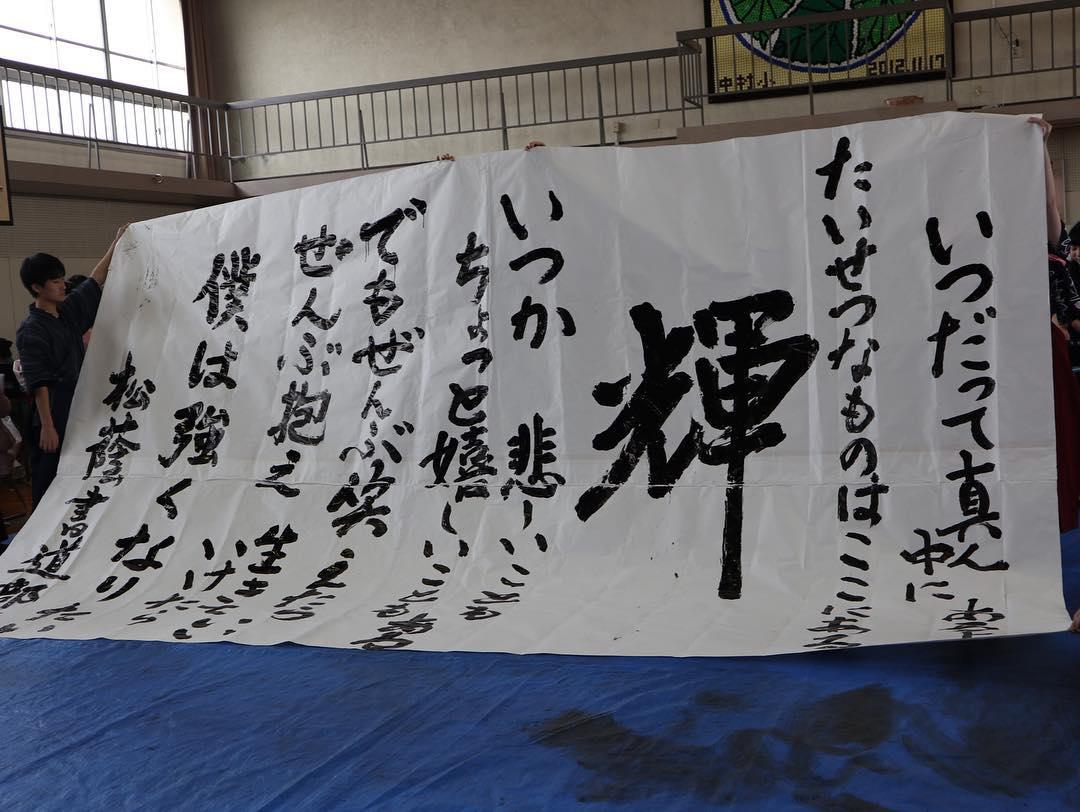 いつだって真ん中に
たいせつなものはここにある
輝
いつか 悲しいことも
ちょっと嬉しいことも
でもぜんぶ笑えたら
ぜんぶ抱え 生きていけたら
僕は強くなりたい
松蔭書道部
中村小 2012.11.17